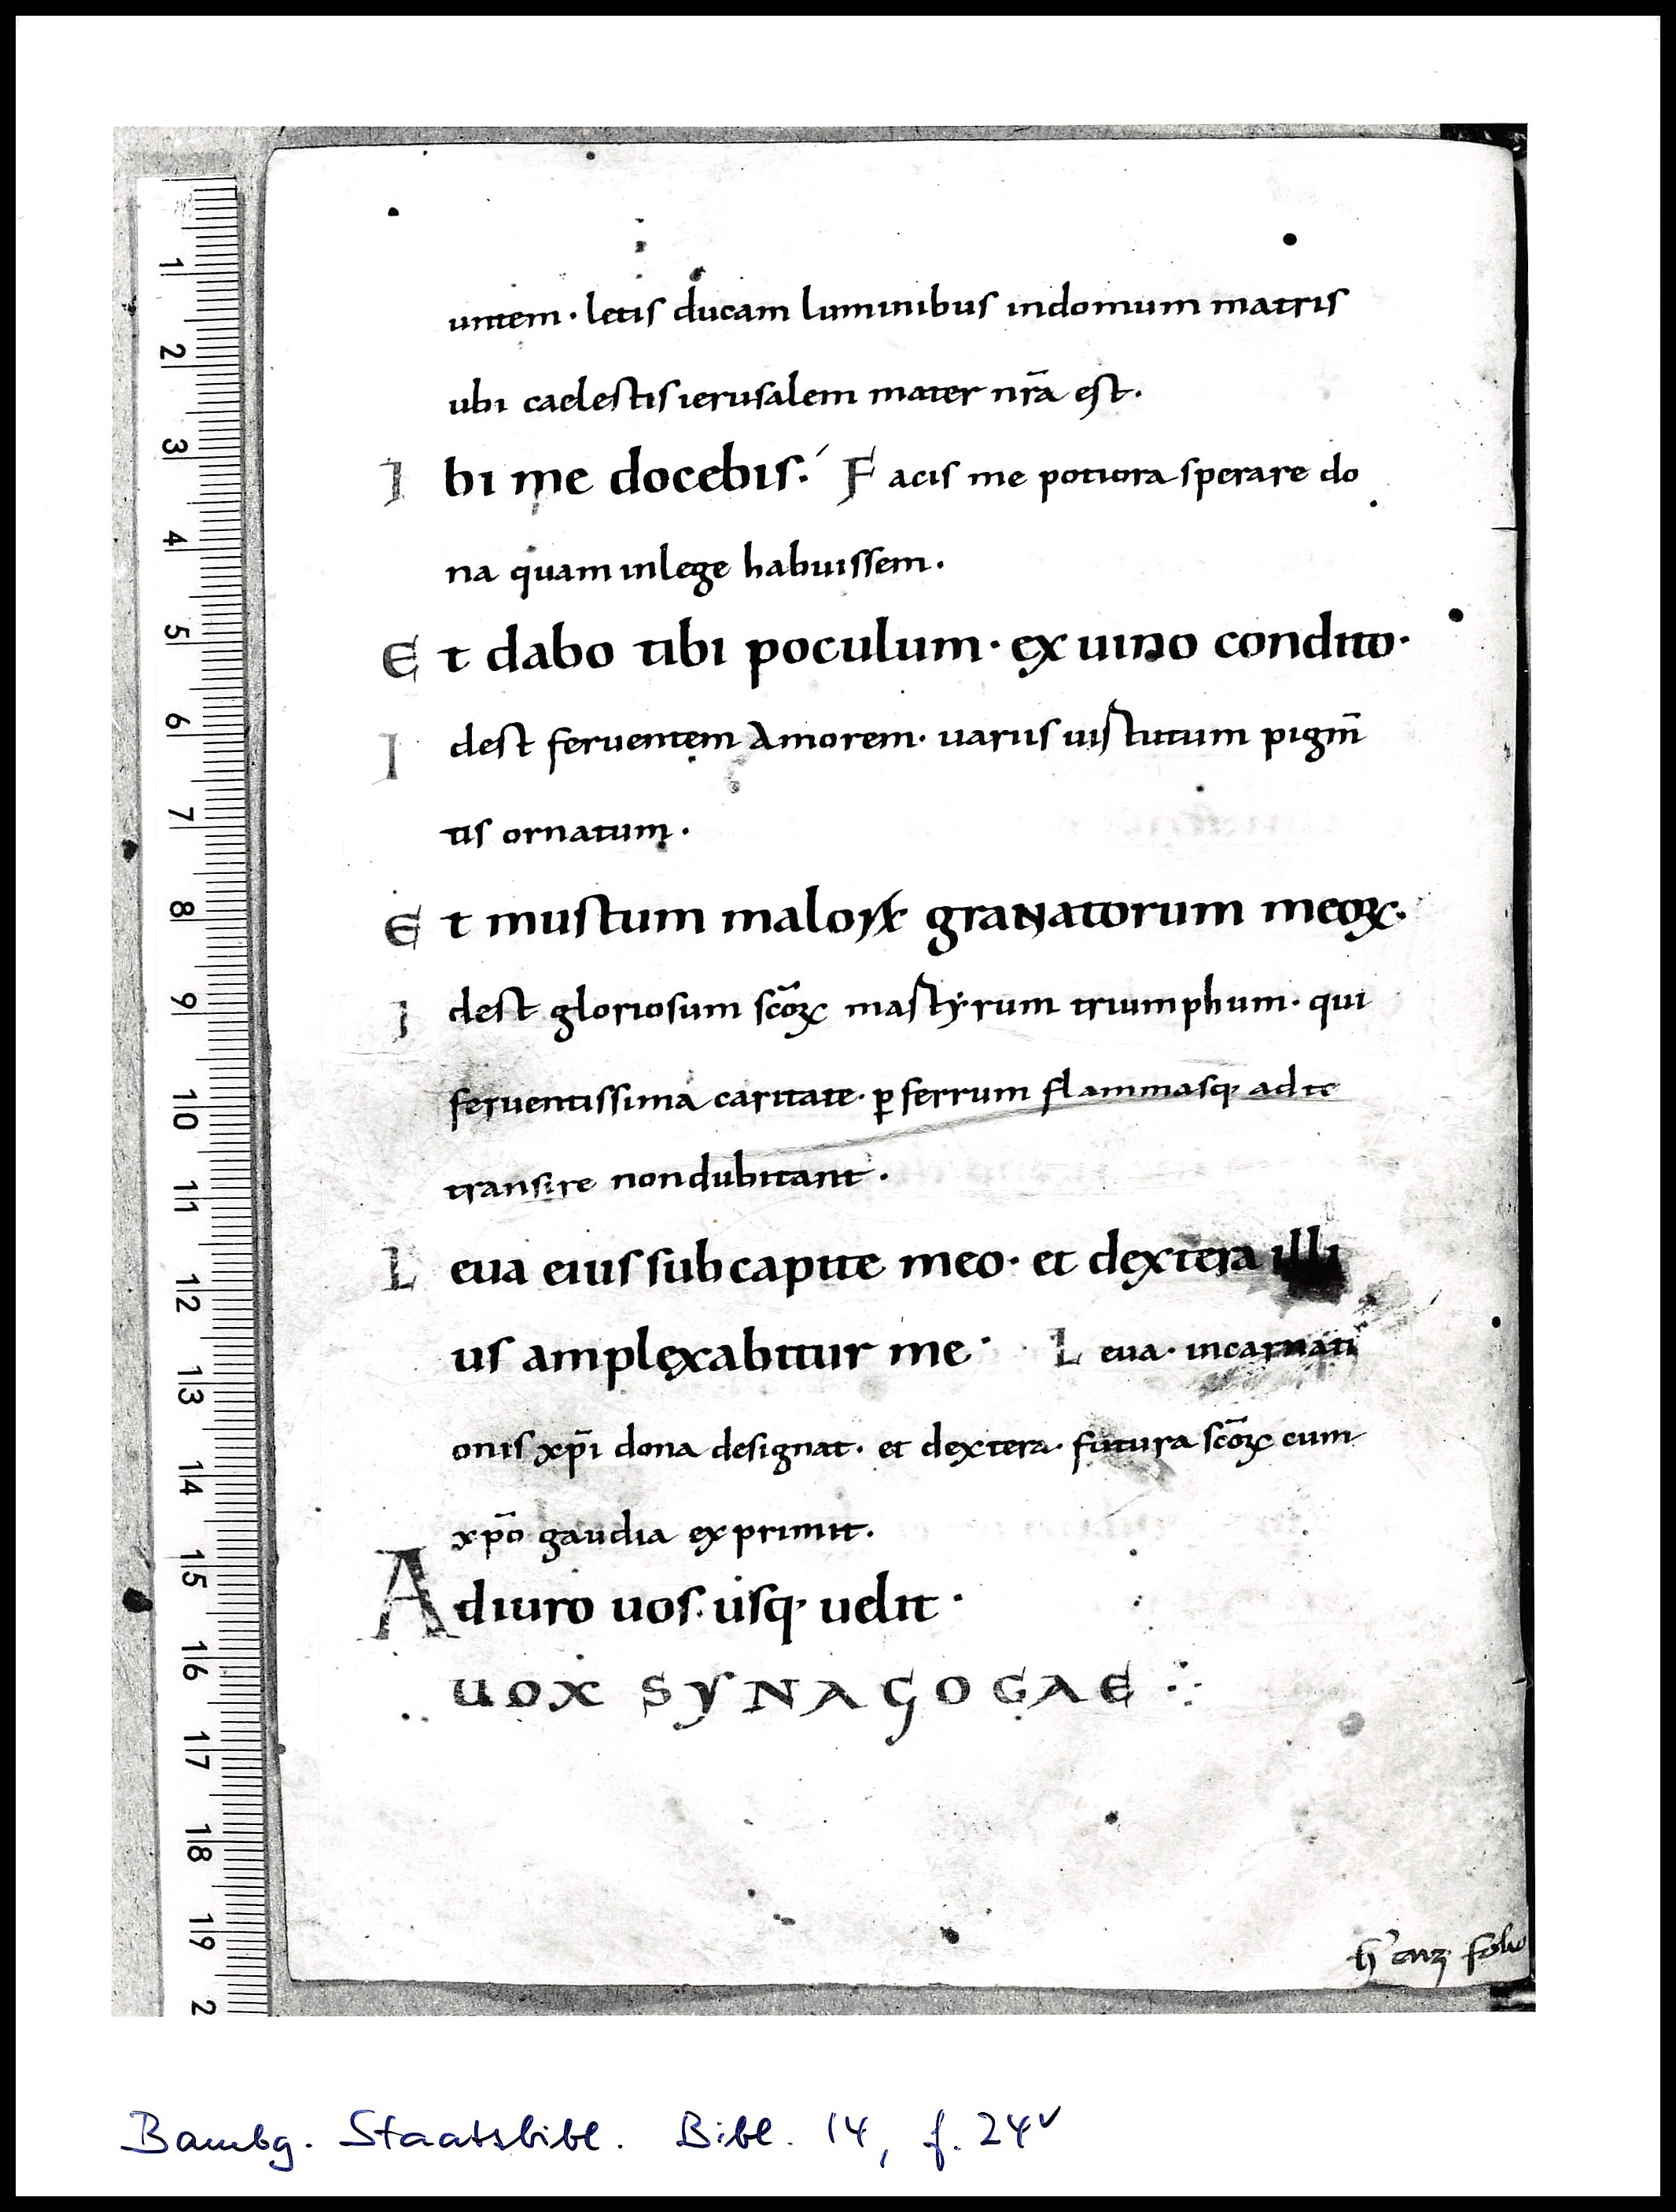 untem · letis ducam luminibus indomum matris
ubi caelestis ierusalem mater nr̄a est.
I bi me docebis:′ F acis me potiora sperare do
na quam inlege habuissem.
E t dabo tibi poculum · ex uino condito ·
I dest feruentem Amorem · uariis uirtutum pigm̄
tis ornatum.
E t mustum maloꝝ granatorum meoꝝ.
I dest gloriosum sc̄oꝝ martẏrum triumphum · qui
feruentissima caritate · ꝑ ferrum flammasq· ad te
transire nondubitant.
L eua eius sub capite meo · et dextera illi
us amplexabitur me · L eua · incarnati
onis xp̄i dona designat · et dextera · futura sc̄oꝝ cum
xp̄o gaudia exprimit.
A diuro uos. usq· uelit ·
UOX SYNAGOGAE
folio
1
2
3
4
5
6
7
8
9
10
11
12
13
14
15
16
17
18
19
2
Bambg. Staatsbibl. Bibl. 14, f. 24v